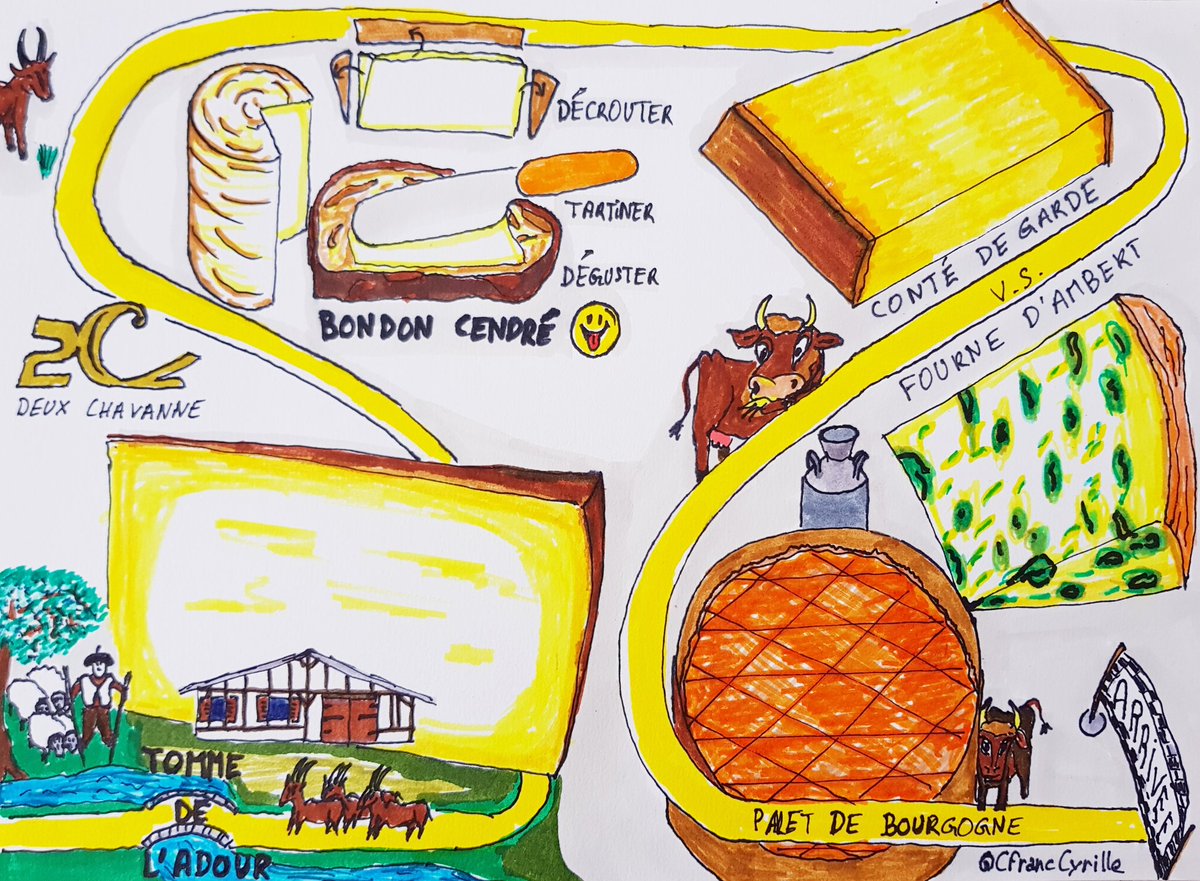 DÉCROUTER
TARTINER
DÉGUSTER
BONDON CENDRÉ
2C
DEUX CHAVANNE
CONTÉ DE GARDE
V.S.
FOURNE D'AMBERT
TOMME
DE
L'ADOUR
PALET DE BOURGOGNE
ARRIVÉE
@CfrancCyrille